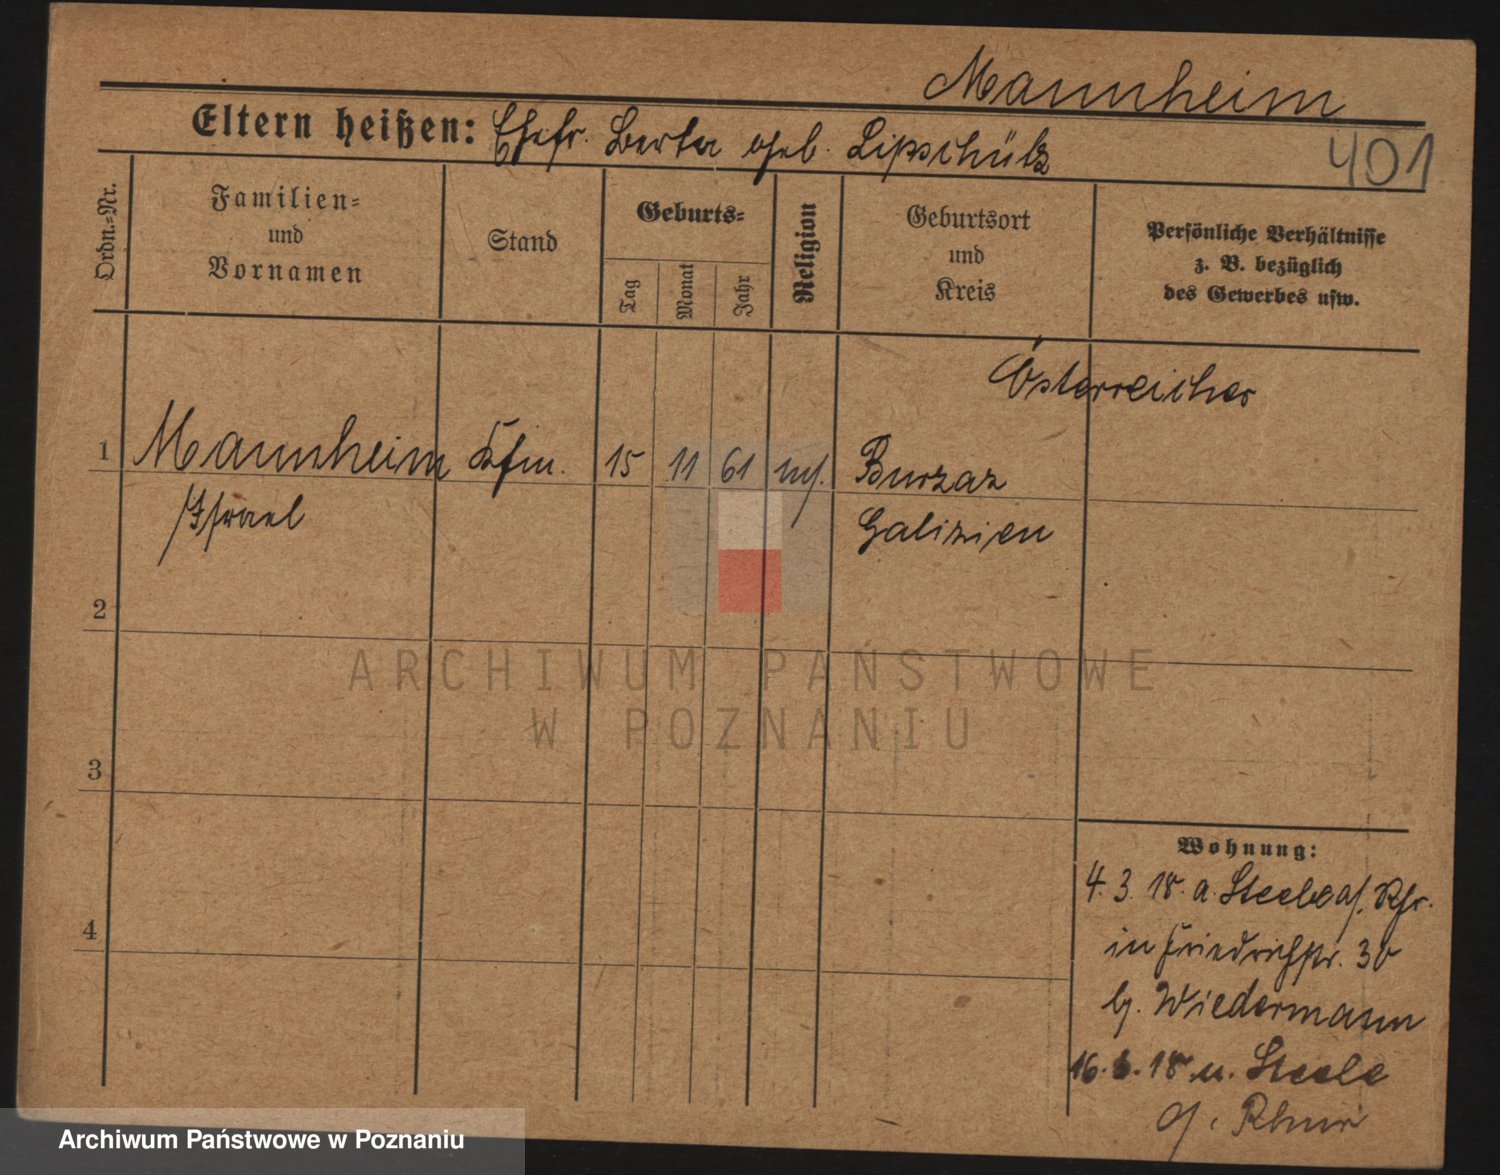 Mannheim
Eltern heißen: Ehefr. Berta geb. Lipschütz
401
Ordn.=Nr.
Familien=
und
Vornamen
Stand
Geburts=
Tag
Monat
Jahr
Religion
Geburtsort
und
Kreis
Persönliche Verhältnisse
z. B. bezüglich
des Gewerbes usw.
Österreicher
1 Mannheim Kfm. 15 11 61 mos. Burzaz
Israel Galizien
2
ARCHIWUM PAŃSTWOWE
W POZNANIU
3
Wohnung:
4. 3. 18. a. Steele a/. Rhr.
4
in Friedrichstr. 30
b. Wiedermann
16. 18. n. Steele
a/. Rhur
Archiwum Państwowe w Poznaniu